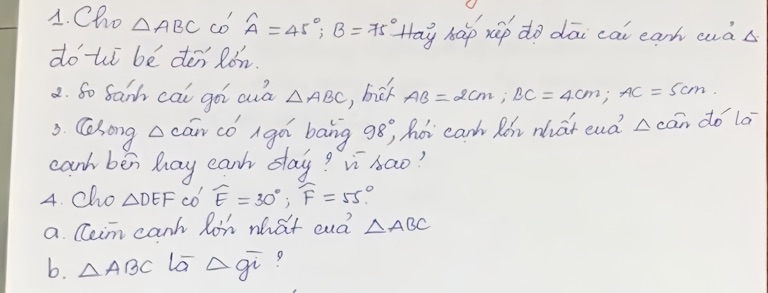 1. Cho △ABC có Â = 45°; B = 75° Hãy sắp xếp độ dài các cạnh của △
đó từ bé đến lớn.
2. So sánh các góc của △ABC, biết AB = 2cm; BC = 4cm; AC = 5cm.
3. Trong △ cân có 1 góc bằng 98°, hỏi cạnh lớn nhất của △ cân đó là
cạnh bên hay cạnh đáy? Vì sao?
4. Cho △DEF có Ê = 30°; F̂ = 55°.
a. Tìm cạnh lớn nhất của △ABC
b. △ABC là △ gì?